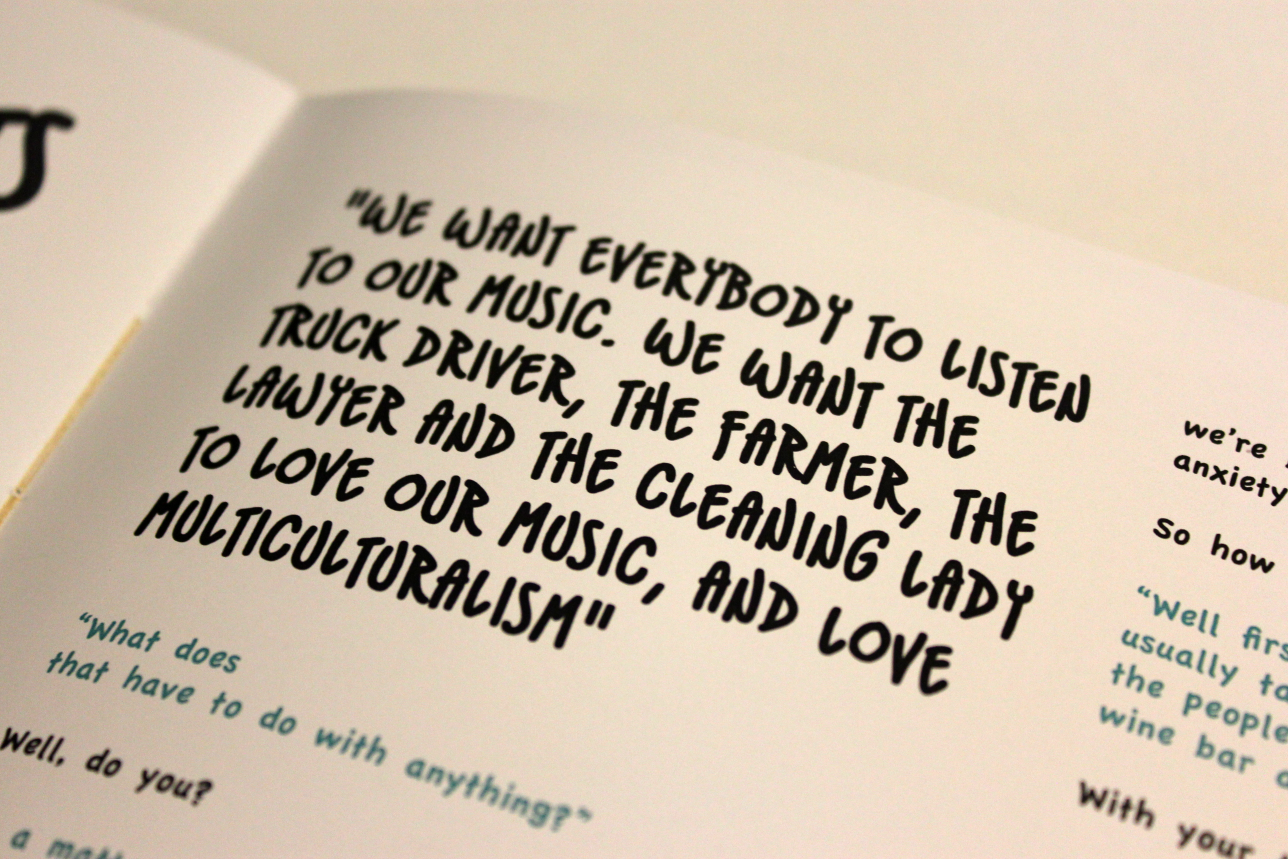 "WE WANT EVERYBODY TO LISTEN
TO OUR MUSIC. WE WANT THE
TRUCK DRIVER, THE FARMER, THE
LAWYER AND THE CLEANING LADY
TO LOVE OUR MUSIC, AND LOVE
MULTICULTURALISM"
“What does
that have to do with anything?”
Well, do you?
a
we’re
anxiety
So how
“Well
usually
the people
wine bar
With your